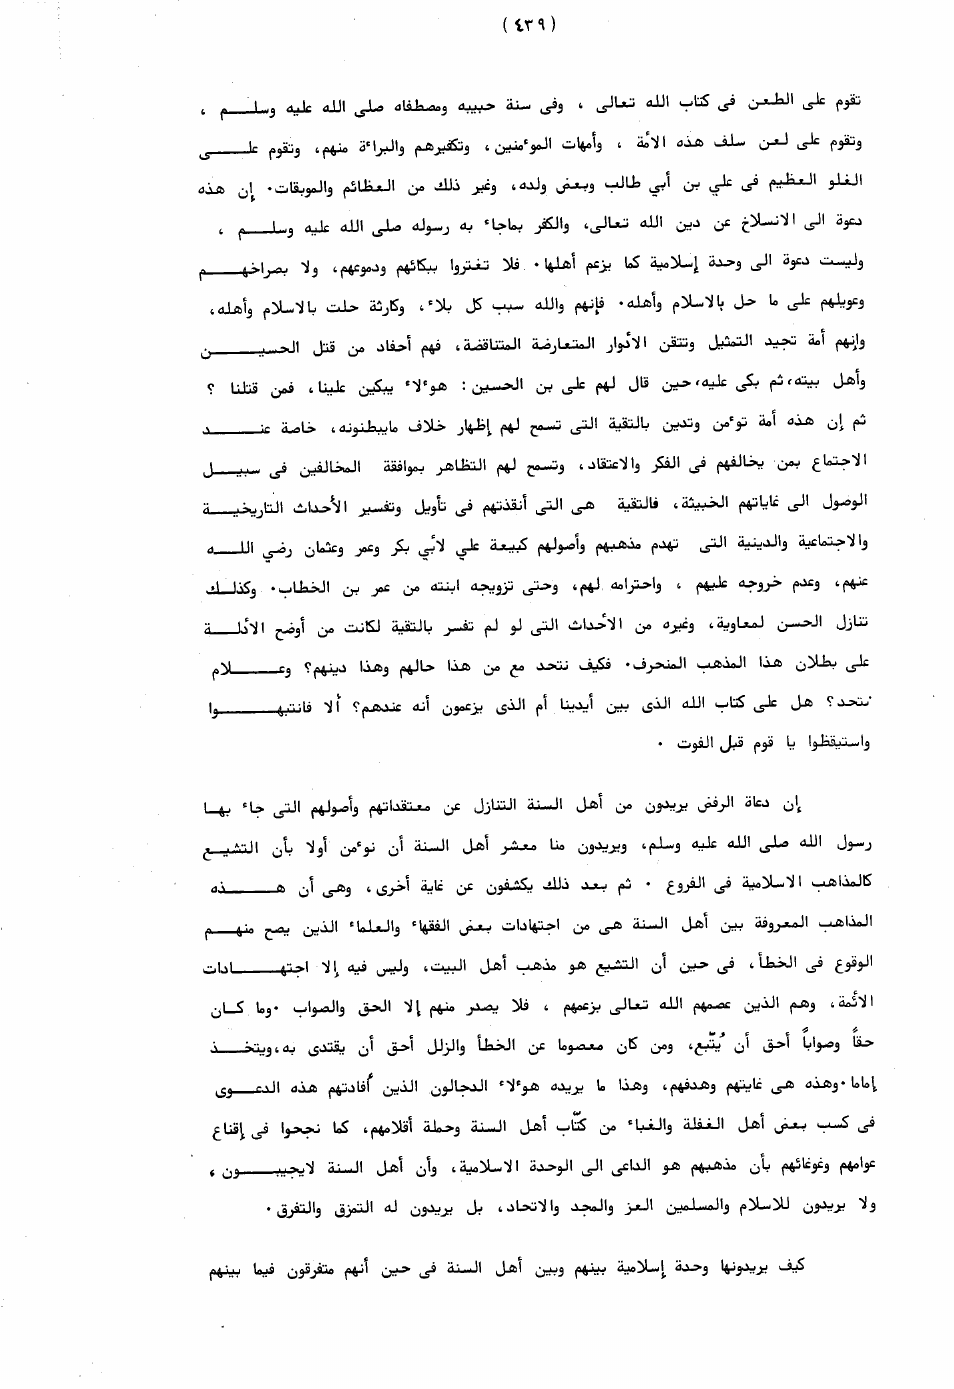 (٤٣٩)
تقوم على الطعن فى كتاب الله تعالى ، وفى سنة حبيبه ومصطفاه صلى الله عليه وسلم ،
وتقوم على لعن سلف هذه الأمة ، وأمهات الموءمنين، وتكفيرهم والبراءة منهم، وتقوم على
الغلو العظيم فى علي بن أبي طالب وبعض ولده، وغير ذلك من العظائم والموبقات٠ إن هذه
دعوة الى الانسلاخ عن دين الله تعالى، والكفر بماجاء به رسوله صلى الله عليه وسلم ،
وليست دعوة الى وحدة إسلامية كما يزعم أهلها٠ فلا تغتروا ببكائهم ودموعهم، ولا بصراخهم
وعويلهم على ما حل بالاسلام وأهله٠ فإنهم والله سبب كل بلاء، وكارثة حلت بالاسلام وأهله،
وإنهم أمة تجيد التمثيل وتتقن الأدوار المتعارضة المتناقضة، فهم أحفاد من قتل الحسين
وأهل بيته، ثم بكى عليه، حين قال لهم على بن الحسين: هوءلاء يبكين علينا، فمن قتلنا ؟
ثم إن هذه أمة توءمن وتدين بالتقية التى تسمح لهم إظهار خلاف مايبطنونه، خاصة عند
الاجتماع بمن يخالفهم فى الفكر والاعتقاد، وتسمح لهم التظاهر بموافقة المخالفين فى سبيل
الوصول الى غاياتهم الخبيثة، فالتقية هى التى أنقذتهم فى تأويل وتفسير الأحداث التاريخية
والاجتماعية والدينية التى تهدم مذهبهم وأصولهم كبيعة علي لأبي بكر وعمر وعثمان رضي الله
عنهم، وعدم خروجه عليهم ، واحترامه لهم، وحتى تزويجه ابنته من عمر بن الخطاب٠ وكذلك
تنازل الحسن لمعاوية، وغيره من الأحداث التى لو لم تفسر بالتقية لكانت من أوضح الأدلة
على بطلان هذا المذهب المنحرف٠ فكيف نتحد مع من هذا حالهم وهذا دينهم؟ وعلام
نتحد؟ هل على كتاب الله الذى بين أيدينا أم الذى يزعمون أنه عندهم؟ ألا فانتبهوا
واستيقظوا يا قوم قبل الفوت ٠
إن دعاة الرفض يريدون من أهل السنة التنازل عن معتقداتهم وأصولهم التى جاء بها
رسول الله صلى الله عليه وسلم، ويريدون منا معشر أهل السنة أن نوءمن أولا بأن التشيع
كالمذاهب الاسلامية فى الفروع ٠ ثم بعد ذلك يكشفون عن غاية أخرى، وهى أن هذه
المذاهب المعروفة بين أهل السنة هى من اجتهادات بعض الفقهاء والعلماء الذين يصح منهم
الوقوع فى الخطأ، فى حين أن التشيع هو مذهب أهل البيت، وليس فيه إلا اجتهادات
الأئمة، وهم الذين عصمهم الله تعالى بزعمهم ، فلا يصدر منهم إلا الحق والصواب ٠وما كان
حقاً وصواباً أحق أن يُتَّبع، ومن كان معصوما عن الخطأ والزلل أحق أن يقتدى به، ويتخذ
إماما٠وهذه هى غايتهم وهدفهم، وهذا ما يريده هوءلاء الدجالون الذين أفادتهم هذه الدعوى
فى كسب بعض أهل الغفلة والغباء من كتّاب أهل السنة وحملة أقلامهم، كما نجحوا فى إقناع
عوامهم وغوغائهم بأن مذهبهم هو الداعى الى الوحدة الاسلامية، وأن أهل السنة لايجيبون ،
ولا يريدون للاسلام والمسلمين العز والمجد والاتحاد، بل يريدون له التمزق والتفرق٠
كيف يريدونها وحدة إسلامية بينهم وبين أهل السنة فى حين أنهم متفرقون فيما بينهم